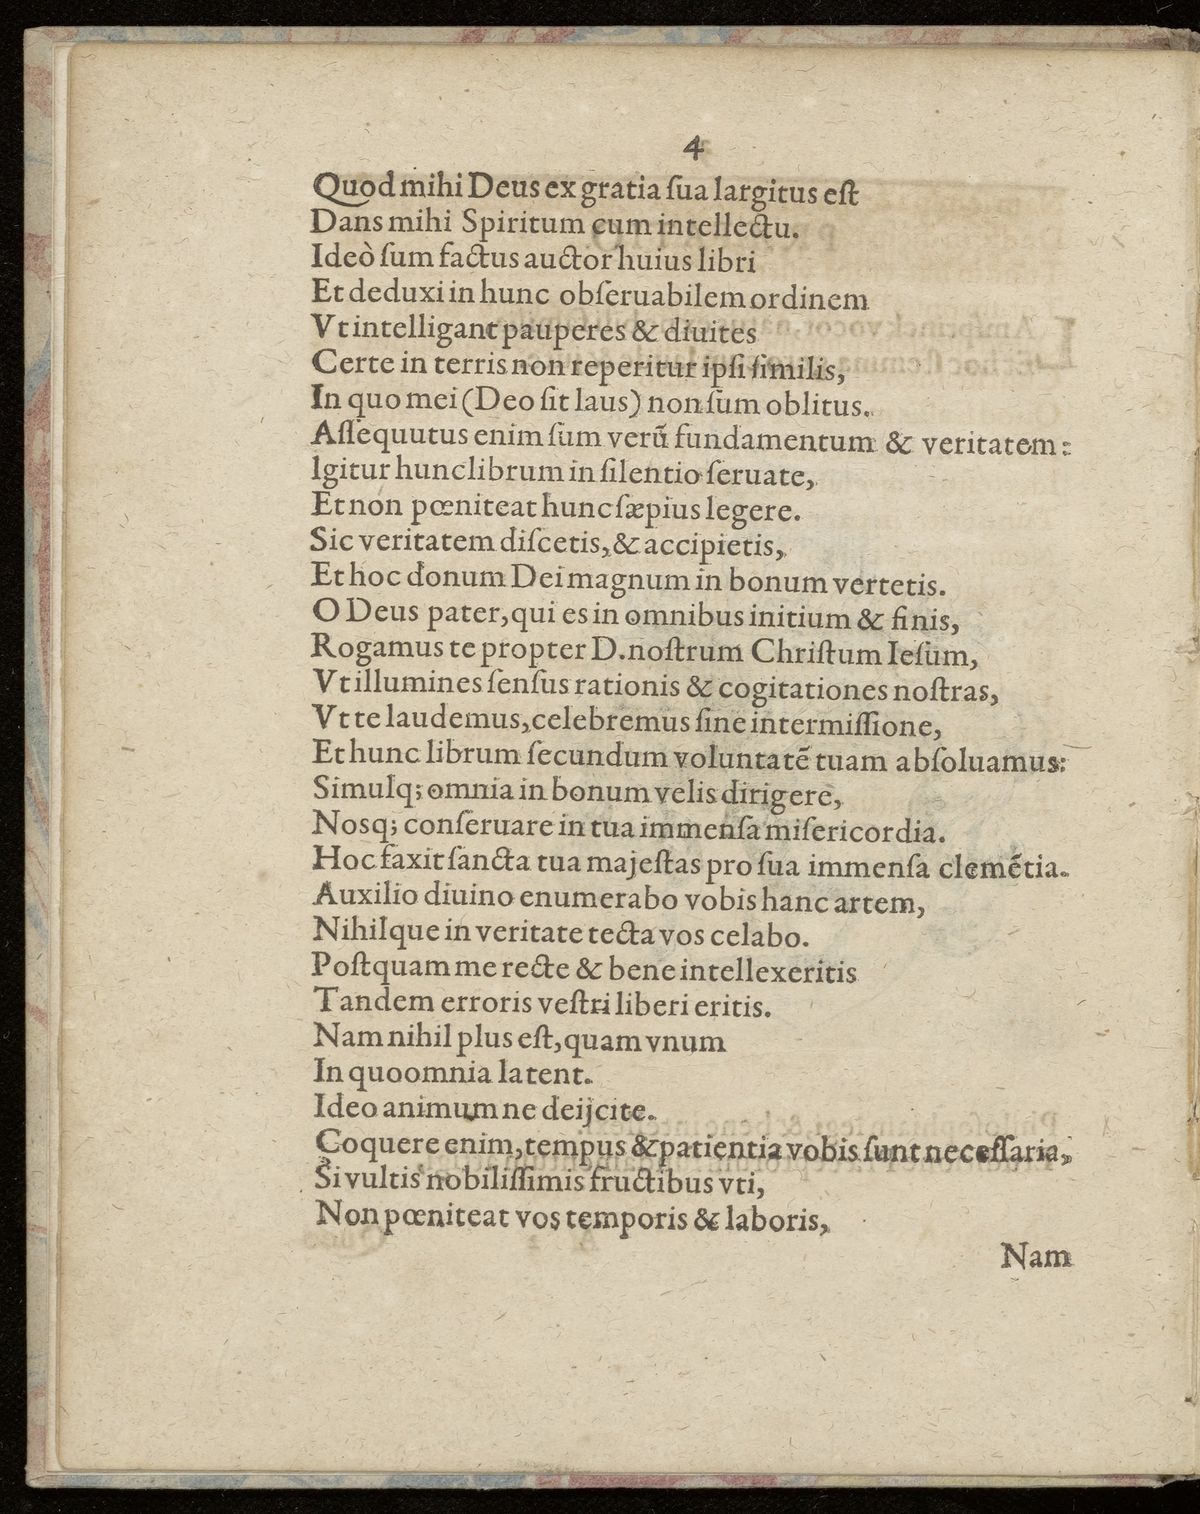 4
Quod mihi Deus ex gratia ſua largitus eſt
Dans mihi Spiritum cum intellectu.
Ideò ſum factus auctor huius libri
Et deduxi in hunc obſeruabilem ordinem
Vt intelligant pauperes & diuites
Certe in terris non reperitur ipſi ſimilis,
In quo mei (Deo ſit laus) non ſum oblitus.
Aſſequutus enim ſum verũ fundamentum & veritatem:
Igitur hunc librum in ſilentio ſeruate,
Et non pœniteat hunc ſæpius legere.
Sic veritatem diſcetis, & accipietis,
Et hoc donum Dei magnum in bonum vertetis.
O Deus pater, qui es in omnibus initium & finis,
Rogamus te propter D. noſtrum Chriſtum Ieſum,
Vt illumines ſenſus rationis & cogitationes noſtras,
Vt te laudemus, celebremus ſine intermiſſione,
Et hunc librum ſecundum voluntatẽ tuam abſoluamus:
Simulq; omnia in bonum velis dirigere,
Nosq; conſeruare in tua immenſa miſericordia.
Hoc faxit ſancta tua majeſtas pro ſua immenſa clemẽtia.
Auxilio diuino enumerabo vobis hanc artem,
Nihilque in veritate tecta vos celabo.
Poſtquam me recte & bene intellexeritis
Tandem erroris veſtri liberi eritis.
Nam nihil plus eſt, quam vnum
In quo omnia latent.
Ideo animum ne deijcite.
Coquere enim, tempus & patientia vobis ſunt neceſſaria,
Si vultis nobiliſſimis fructibus vti,
Non pœniteat vos temporis & laboris,
Nam